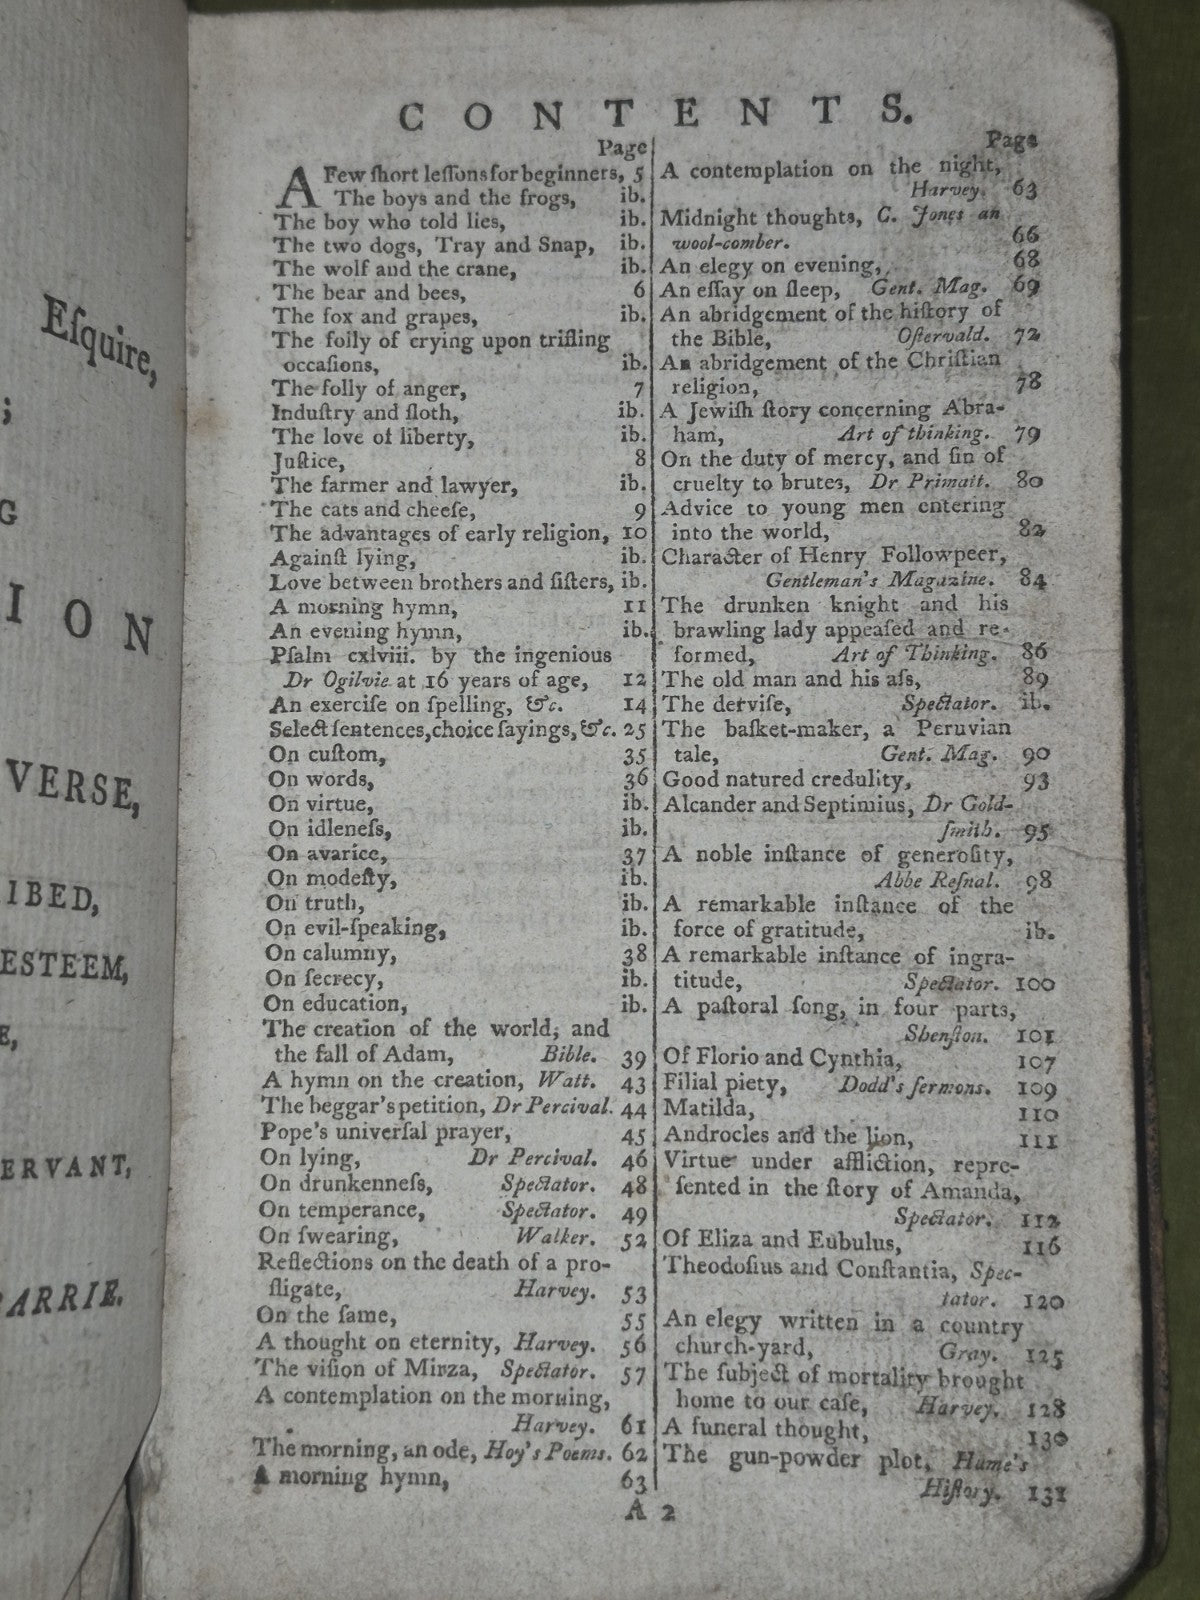 Esquire,
;
G
ION
VERSE,
IBED,
ESTEEM,
E,
ERVANT,
ARRIE.
CONTENTS.
Page
A Few ſhort leſſons for beginners, 5
The boys and the frogs, ib.
The boy who told lies, ib.
The two dogs, Tray and Snap, ib.
The wolf and the crane, ib.
The bear and bees, 6
The fox and grapes, ib.
The folly of crying upon trifling
occaſions, ib.
The folly of anger, 7
Induſtry and ſloth, ib.
The love of liberty, ib.
Juſtice, 8
The farmer and lawyer, ib.
The cats and cheeſe, 9
The advantages of early religion, 10
Againſt lying, ib.
Love between brothers and ſiſters, ib.
A morning hymn, 11
An evening hymn, ib.
Pſalm cxlviii. by the ingenious
Dr Ogilvie at 16 years of age, 12
An exerciſe on ſpelling, &c. 14
Select ſentences, choice ſayings, &c. 25
On cuſtom, 35
On words, 36
On virtue, ib.
On idleneſs, ib.
On avarice, 37
On modeſty, ib.
On truth, ib.
On evil-ſpeaking, ib.
On calumny, 38
On ſecrecy, ib.
On education, ib.
The creation of the world, and
the fall of Adam, Bible. 39
A hymn on the creation, Watt. 43
The beggar's petition, Dr Percival. 44
Pope's univerſal prayer, 45
On lying, Dr Percival. 46
On drunkenneſs, Spectator. 48
On temperance, Spectator. 49
On ſwearing, Walker. 52
Reflections on the death of a pro-
fligate, Harvey. 53
On the ſame, 55
A thought on eternity, Harvey. 56
The viſion of Mirza, Spectator. 57
A contemplation on the morning,
Harvey. 61
The morning, an ode, Hoy's Poems. 62
A morning hymn, 63
Page
A contemplation on the night,
Harvey. 63
Midnight thoughts, C. Jones an
wool-comber. 66
An elegy on evening, 68
An eſſay on ſleep, Gent. Mag. 69
An abridgement of the hiſtory of
the Bible, Oſtervald. 72
An abridgement of the Chriſtian
religion, 78
A Jewiſh ſtory concerning Abra-
ham, Art of thinking. 79
On the duty of mercy, and ſin of
cruelty to brutes, Dr Primatt. 80
Advice to young men entering
into the world, 82
Character of Henry Followpeer,
Gentleman's Magazine. 84
The drunken knight and his
brawling lady appeaſed and re-
formed, Art of Thinking. 86
The old man and his aſs, 89
The derviſe, Spectator. ib.
The baſket-maker, a Peruvian
tale, Gent. Mag. 90
Good natured credulity, 93
Alcander and Septimius, Dr Gold-
ſmith. 95
A noble inſtance of generoſity,
Abbe Reſnal. 98
A remarkable inſtance of the
force of gratitude, ib.
A remarkable inſtance of ingra-
titude, Spectator. 100
A paſtoral ſong, in four parts,
Shenſton. 101
Of Florio and Cynthia, 107
Filial piety, Dodd's ſermons. 109
Matilda, 110
Androcles and the lion, 111
Virtue under affliction, repre-
ſented in the ſtory of Amanda,
Spectator. 112
Of Eliza and Eubulus, 116
Theodoſius and Conſtantia, Spec-
tator. 120
An elegy written in a country
church-yard, Gray. 125
The ſubject of mortality brought
home to our caſe, Harvey. 128
A funeral thought, 130
The gun-powder plot, Hume's
Hiſtory. 131
A 2